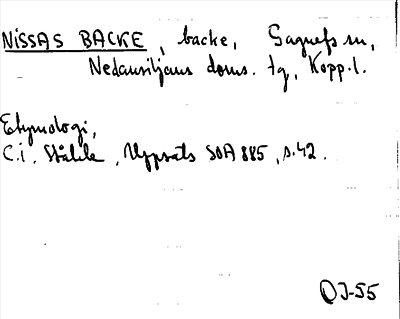 NISSAS BACKE, backe, Gagnefs sn,
Nedansiljans doms. tg, Kopp.l.
Etymologi,
C.I. Ståhle, Uppsats SOA 885, s.42.
OJ-55